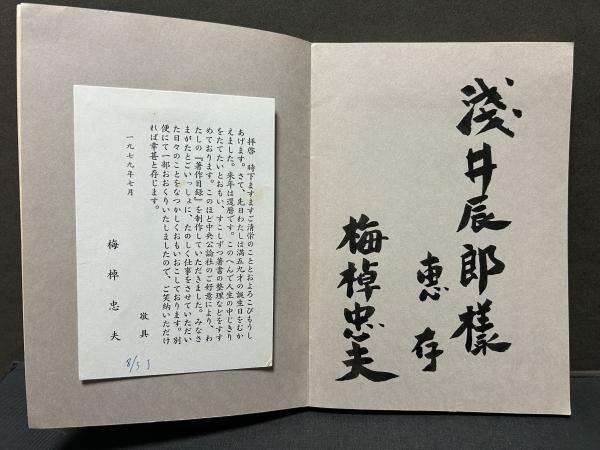 拝啓 時下ますますご清栄のこととおよろこびもうし
あげます。さて、先日わたしは満五九才の誕生日をむか
えました。来年は還暦です。このへんで人生の中じきり
をたてたいとおもい、すこしずつ著書の整理などをすす
めております。このほど中央公論社のご好意により、わ
たしの『著作目録』を制作していただきました。みなさ
まがたとごいっしょに、たのしく仕事をさせていただい
た日々のことをなつかしくおもいおこしております。別
便にて一部おおくりいたしましたので、ご笑納いただけ
れば幸甚と存じます。
敬具
一九七九年七月
梅棹忠夫
淺井辰郎様
恵存
梅棹忠夫